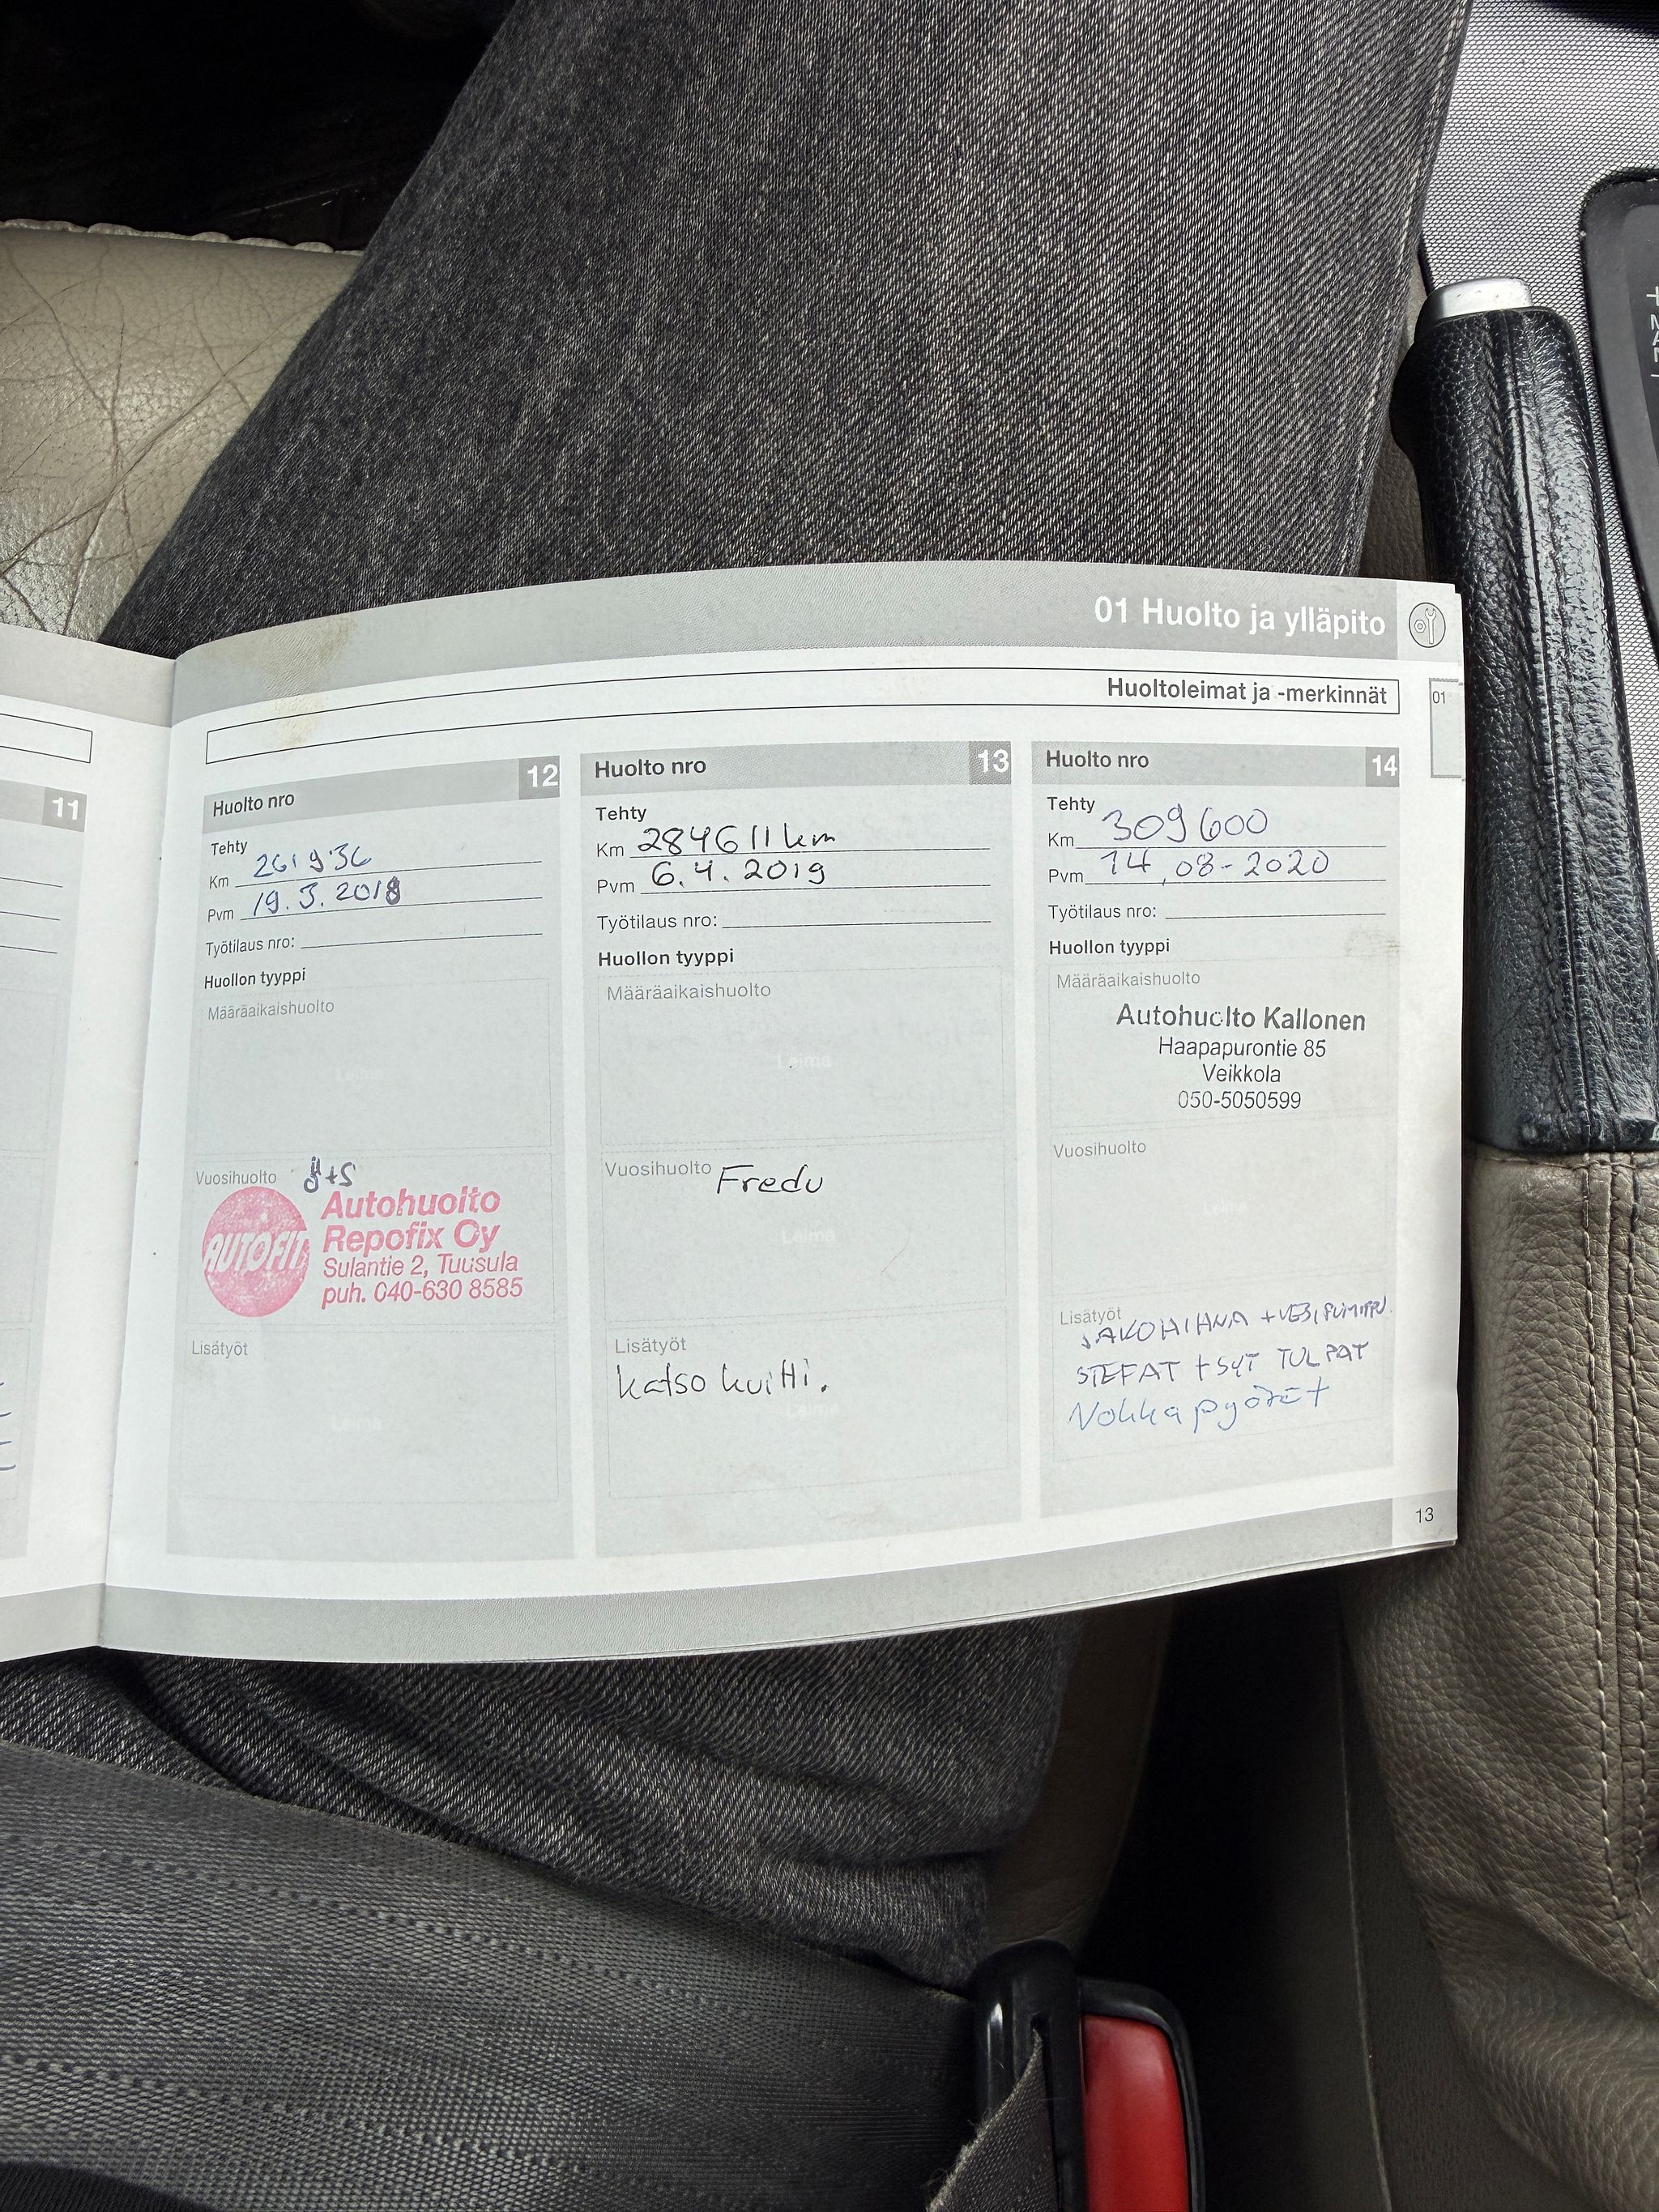 01 Huolto ja ylläpito
Huoltoleimat ja -merkinnät
01
11
Huolto nro 12
Tehty
Km 261936
Pvm 19.3.2018
Työtilaus nro:
Huollon tyyppi
Määräaikaishuolto
Leima
Vuosihuolto ö+S
AUTOFIT
Autohuolto
Repofix Oy
Sulantie 2, Tuusula
puh. 040-630 8585
Lisätyöt
Leima
Huolto nro 13
Tehty
Km 284611 km
Pvm 6.4.2019
Työtilaus nro:
Huollon tyyppi
Määräaikaishuolto
Leima
Vuosihuolto Fredu
Leima
Lisätyöt
katso kuitti.
Leima
Huolto nro 14
Tehty
Km 309600
Pvm 14,08-2020
Työtilaus nro:
Huollon tyyppi
Määräaikaishuolto
Autohuolto Kallonen
Haapapurontie 85
Veikkola
050-5050599
Vuosihuolto
Leima
Lisätyöt
JAKOHIHNA + VESIPUMPPU
STEFAT + SYT TULPAT
Nokka pyörät
13